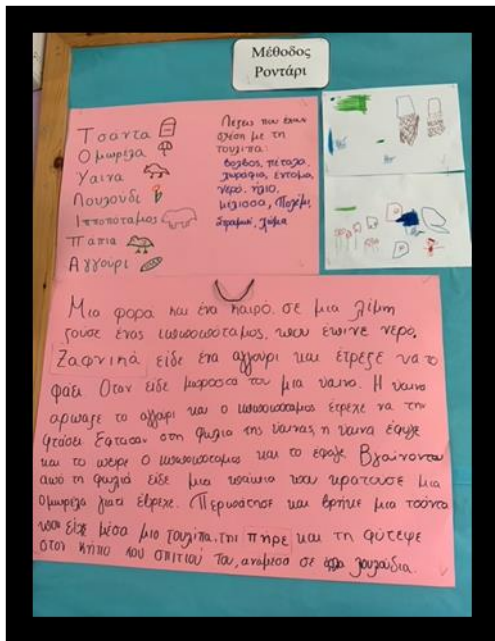 Μέθοδος
Ροντάρι
Τσαντα
Ομπρελα
Υαινα
Λουλούδι
Ιπποπόταμος
Παπια
Αγγουρι
Λεξεις που έχουν
σχέση με τη
τουλιπα:
βολβος, πέταλα,
χωράφια, έντομα,
νερό, ήλιο,
μέλισσα,
χώμα
Μια φορα και ένα καιρό. σε μια λίμνη
ζούσε ένας ιπποπόταμος, που έπινε νερο.
Ξαφνικά είδε ένα αγγουρι και έτρεξε να το
φαει Οταν ειδε μπροστα του μια υαινα. Η υαινα
αρπαξε το αγγουρι και ο ιπποπόταμος έτρεχε να την
φτάσει Εφτασαν στη φωλια της υαινας, η υαινα έφυγε
και το πήρε ο ιπποπόταμος και το έφαγε Βγαίνοντας
από τη φωλιά είδε μια παπια που κρατουσε μια
Ομπρέλα γιατί έβρεχε. Περπάτησε και βρήκε μια τσάντα
που είχε μέσα μια τουλιπα. την πήρε και τη φύτεψε
στον κήπο του σπιτιού του, αναμεσα σε λουλούδια.